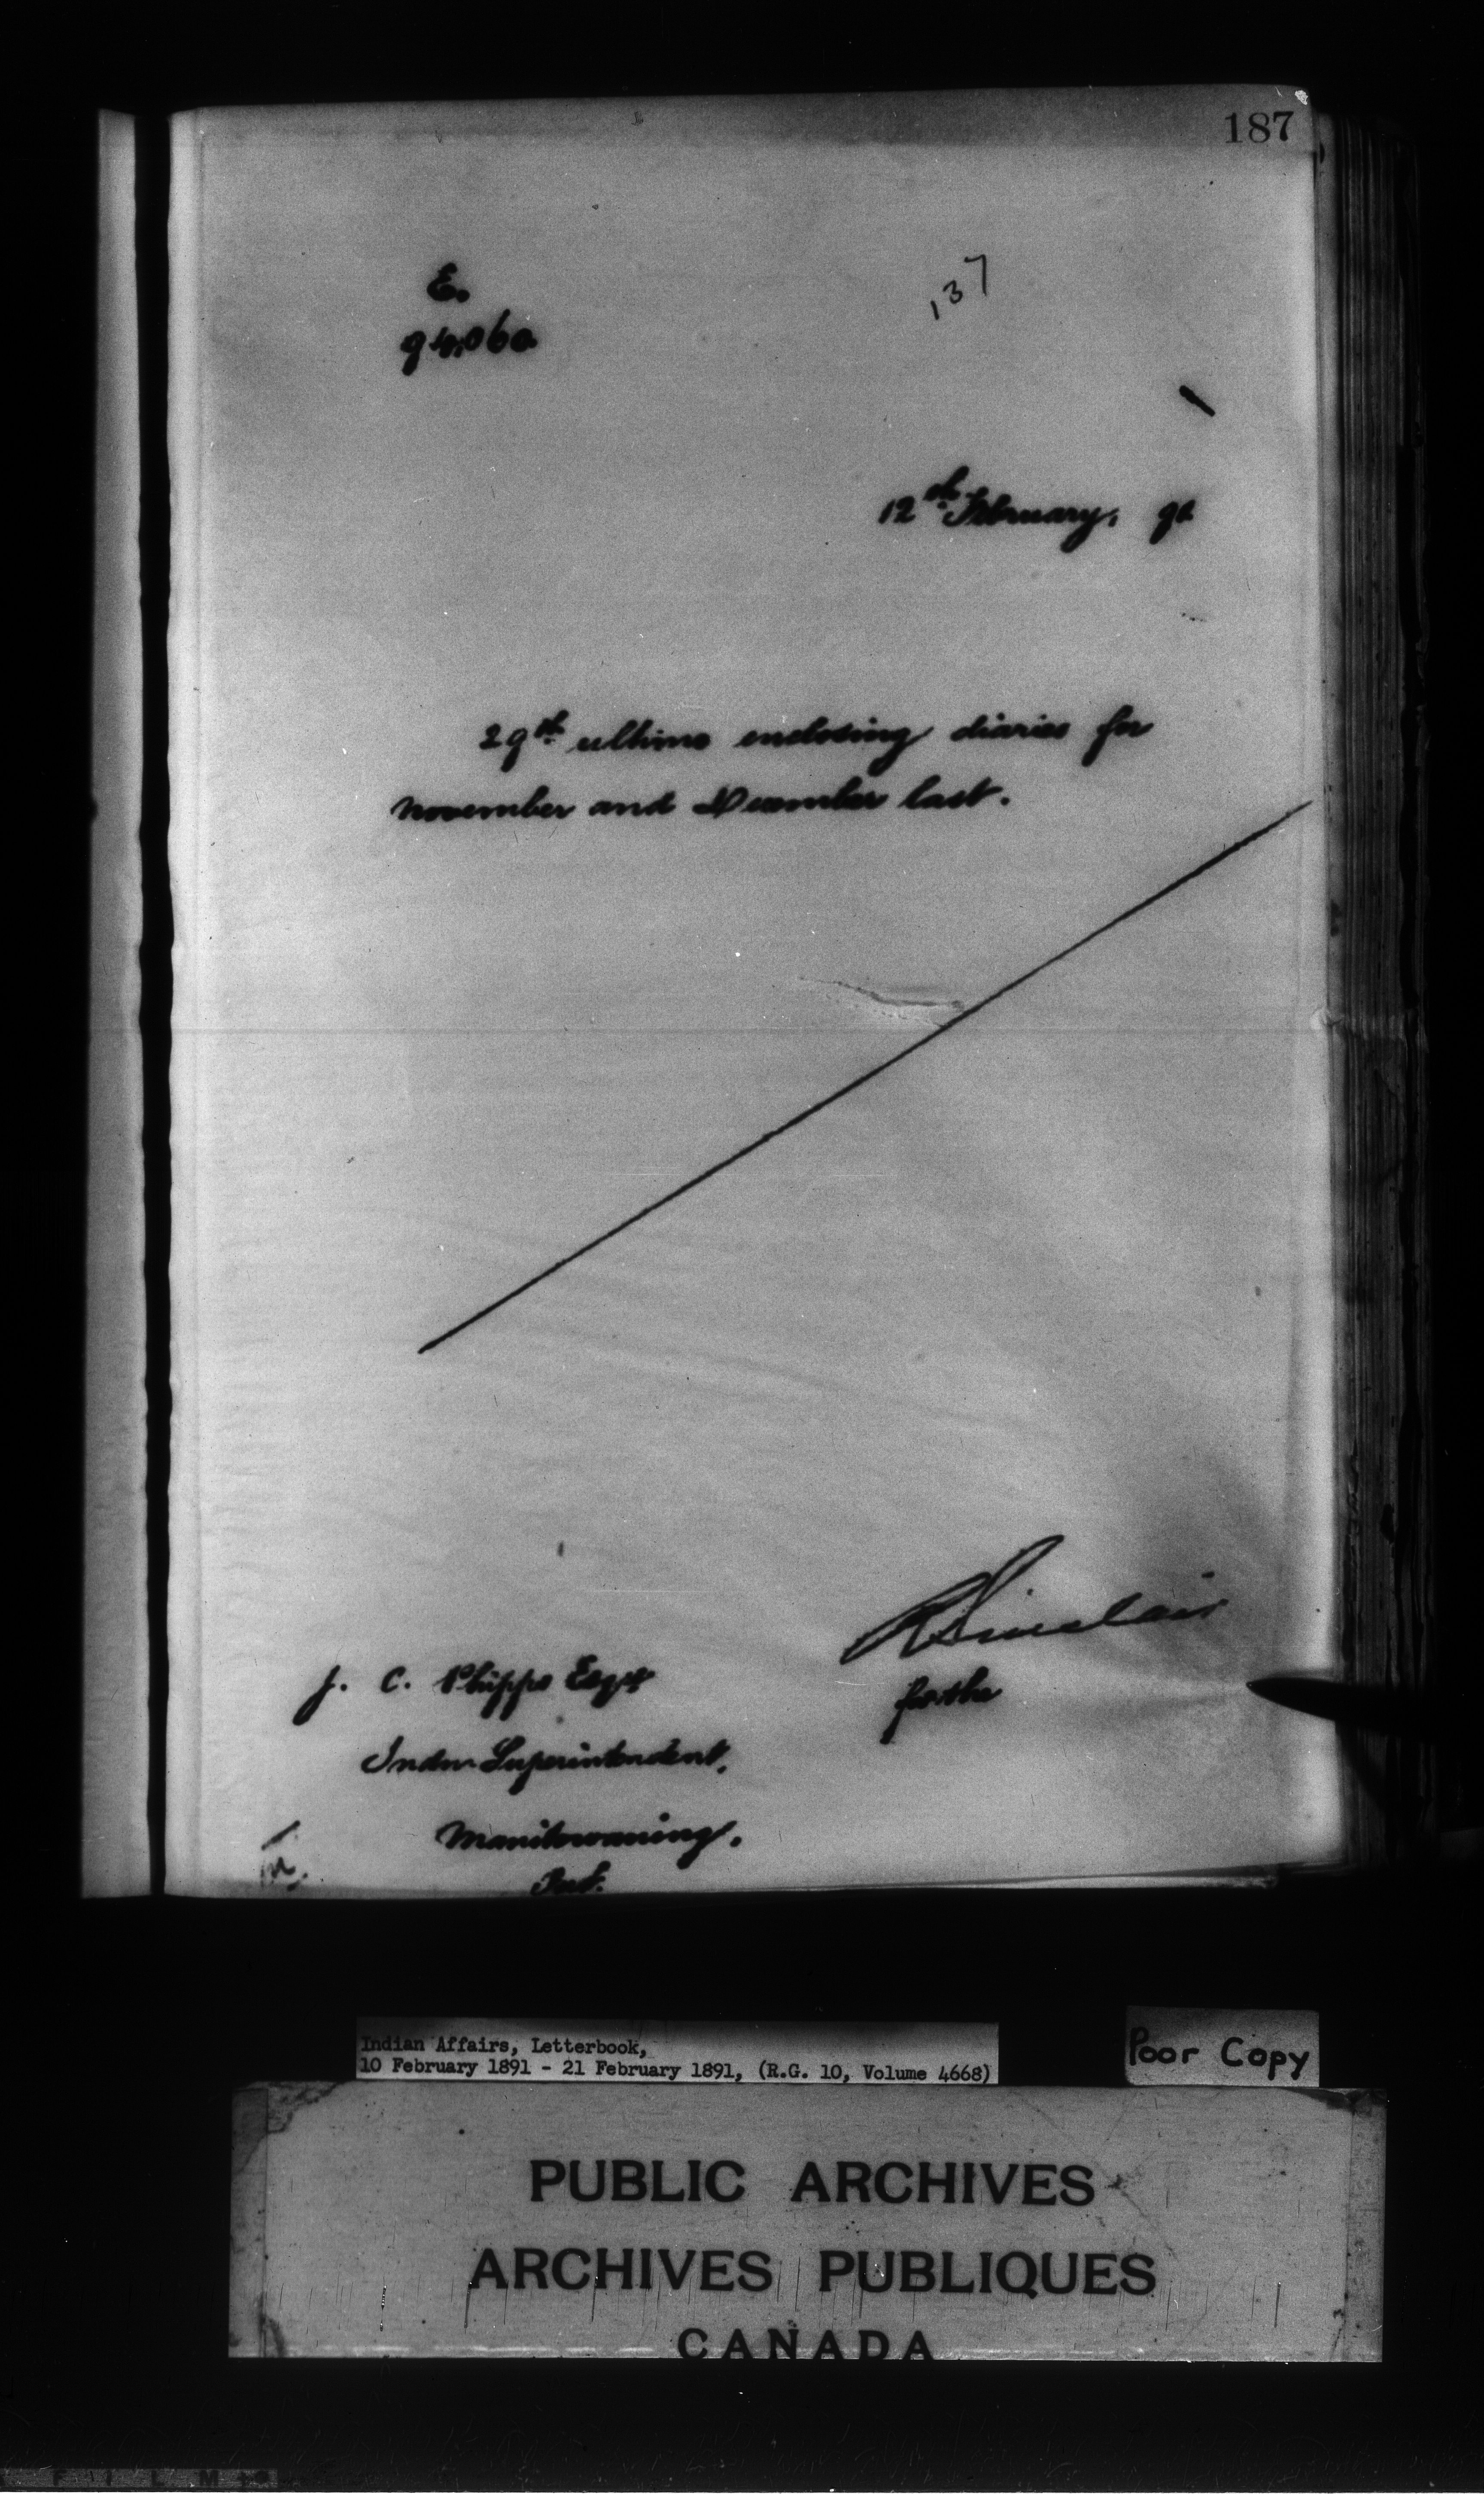 187
E.
94,060
137
12th February, 91
29th ultimo enclosing diaries for
November and December last.
R Sinclair
for the
J. C. Phipps Esqre
Indn Superintendent,
Manitowaning.
Ont.
Indian Affairs, Letterbook,
10 February 1891 - 21 February 1891, (R.G. 10, Volume 4668)
Poor Copy
PUBLIC ARCHIVES
ARCHIVES PUBLIQUES
CANADA